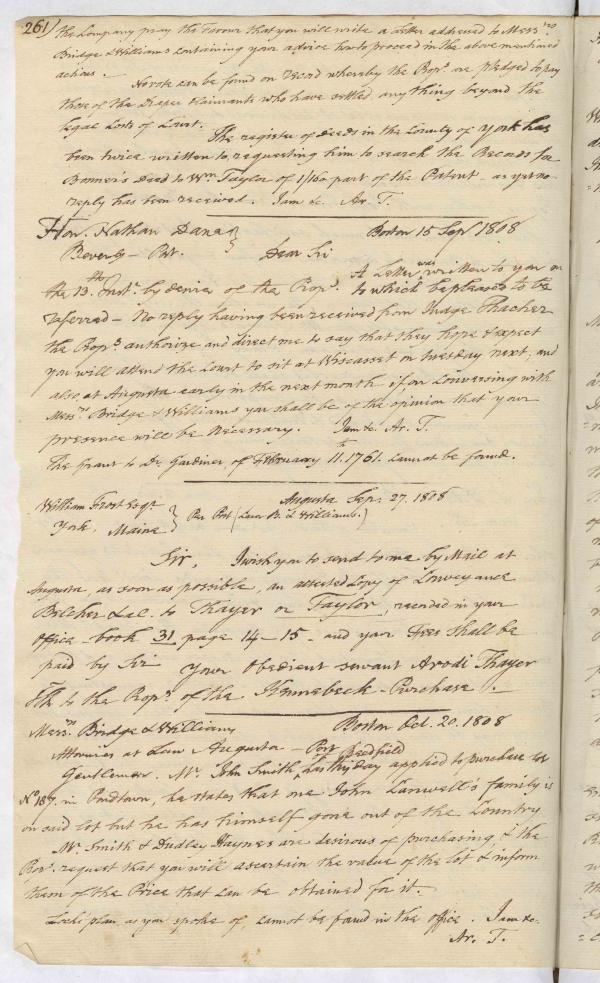 261/ the Company pray the Favour that you will write a Letter addressed to Messrs
Bridge & Williams containing your advice how to proceed in the above mentioned
actions.
No vote can be found on record whereby the Props. are pledged to pay
those of the Draper Claimants who have settled, anything beyond the
legal Costs of Court.
The register of deeds in the County of York has
been twice written to, requesting him to search the Records for
Bonner's Deed to Wm Taylor of 1/16th part of the Patent - as yet no
reply has been received. I am &c. Ar. T.
Hon. Nathan Dane } Boston 15 Sept 1808
Beverly - Pst. Dear Sir
A Letter was written to you on
the 13th Inst. by desire of the Props. to which be pleased to be
referred - No reply having been received from Judge Thacher
the Props. authorize and direct me to say that they hope & expect
you will attend the Court to sit at Wiscasset on tuesday next, and
also, at Augusta early in the next month if, on Conversing with
Messrs. Bridge & Williams you shall be of the opinion that your
presence will be necessary. I am &c. Ar. T.
The grant to Dr. Gardiner, of February 11th. 1761. cannot be found.
William Frost Esqr. Augusta Sep: 27. 1808
York, Maine } Per Post (Care B. & Williams.)
Sir, I wish you to send to me by Mail at
Augusta, as soon as possible, an attested Copy of Conveyance
Belcher &al. to Thayer or Taylor, recorded in your
Office - book 31 page 14 - 15 - and your Fees shall be
paid by Sir Your Obedient servant Arodi Thayer
Clk to the Props. of the Kennebeck - Purchase.
Messrs. Bridge & Williams Boston Oct. 20. 1808
Attornies at Law Augusta - Post
Gentlemen. Mr. John Smith, has this day applied to purchase lot
No 187. in Pondtown, he states that one John Canwell's family is
on said lot but he has himself gone out of the Country
Mr. Smith & Dudley Haynes are desirous of purchasing & the
Props. request that you will ascertain the value of the lot & inform
them of the Price that can be obtained for it.
Locks' plan as you spoke of, cannot be found in the office. I am &c.
Ar. T.